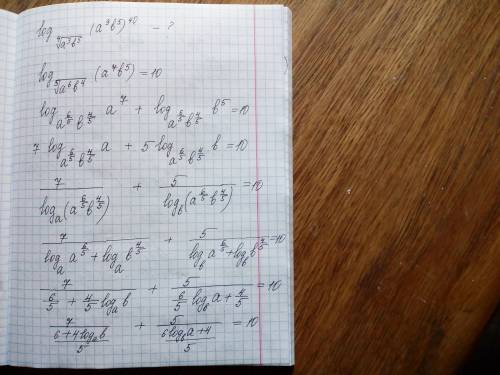 log_{\sqrt[4]{a^3b^5}} (a^3b^5)^{40} - ?
log_{\sqrt[5]{a^6b^4}} (a^7b^5) = 10
log_{a^{6/5}b^{4/5}} a^7 + log_{a^{6/5}b^{4/5}} b^5 = 10
7 log_{a^{6/5}b^{4/5}} a + 5 log_{a^{6/5}b^{4/5}} b = 10
7/(log_a(a^{6/5}b^{4/5})) + 5/(log_b(a^{6/5}b^{4/5})) = 10
7/(log_a a^{6/5} + log_a b^{4/5}) + 5/(log_b a^{6/5} + log_b b^{4/5}) = 10
7/(6/5 + 4/5 log_a b) + 5/(6/5 log_b a + 4/5) = 10
7/((6 + 4 log_a b)/5) + 5/((6 log_b a + 4)/5) = 10